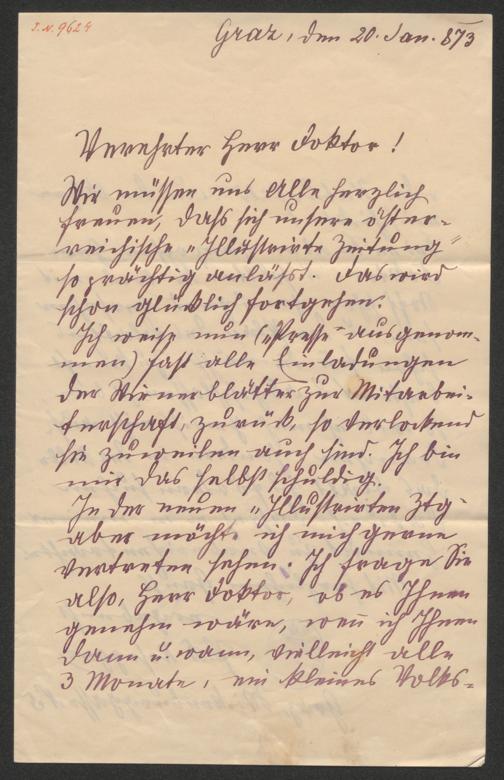 I. N. 9624
Graz, den 20. Jan. 873
Verehrter Herr Doktor!
Wir müssen uns Alle herzlich
freuen, daß sich unsere öster-
reichische „Illustrirte Zeitung"
so prächtig anläßt. Das wird
schon glücklich fortgehen.
Ich weise nun („Presse" ausgenom-
men) fast alle Einladungen
der Wienerblätter zur Mitarbei-
terschaft, zurück, so verlockend
sie zuweilen auch sind. Ich bin
mir das selbst schuldig.
In der neuen „Illustrirten Ztg"
aber möchte ich mich gerne
vertreten sehen. Ich frage Sie
also, Herr Doktor, ob es Ihnen
genehm wäre, wen̄ ich Ihnen
dann u. wann, vielleicht alle
3 Monate, ein kleines Volks-